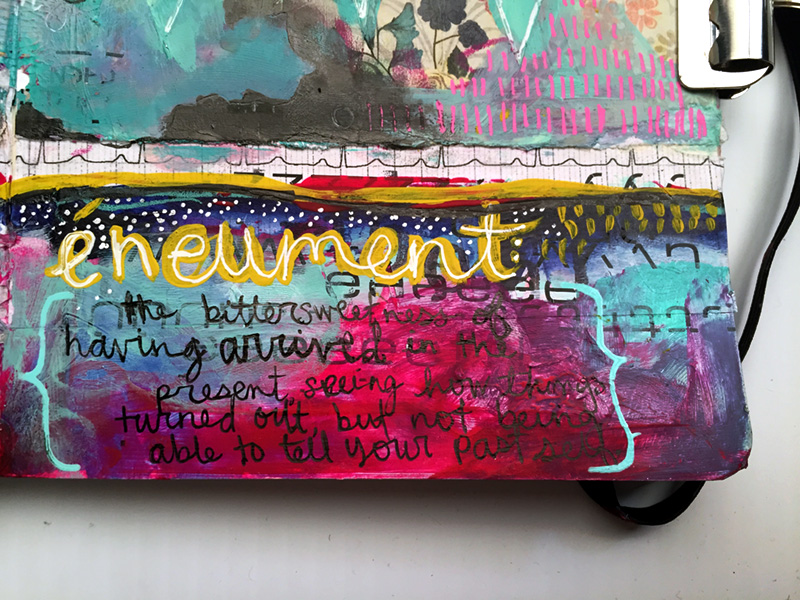 éneument
the bittersweetness of
having arrived in the
present, seeing how things
turned out, but not being
able to tell your past self